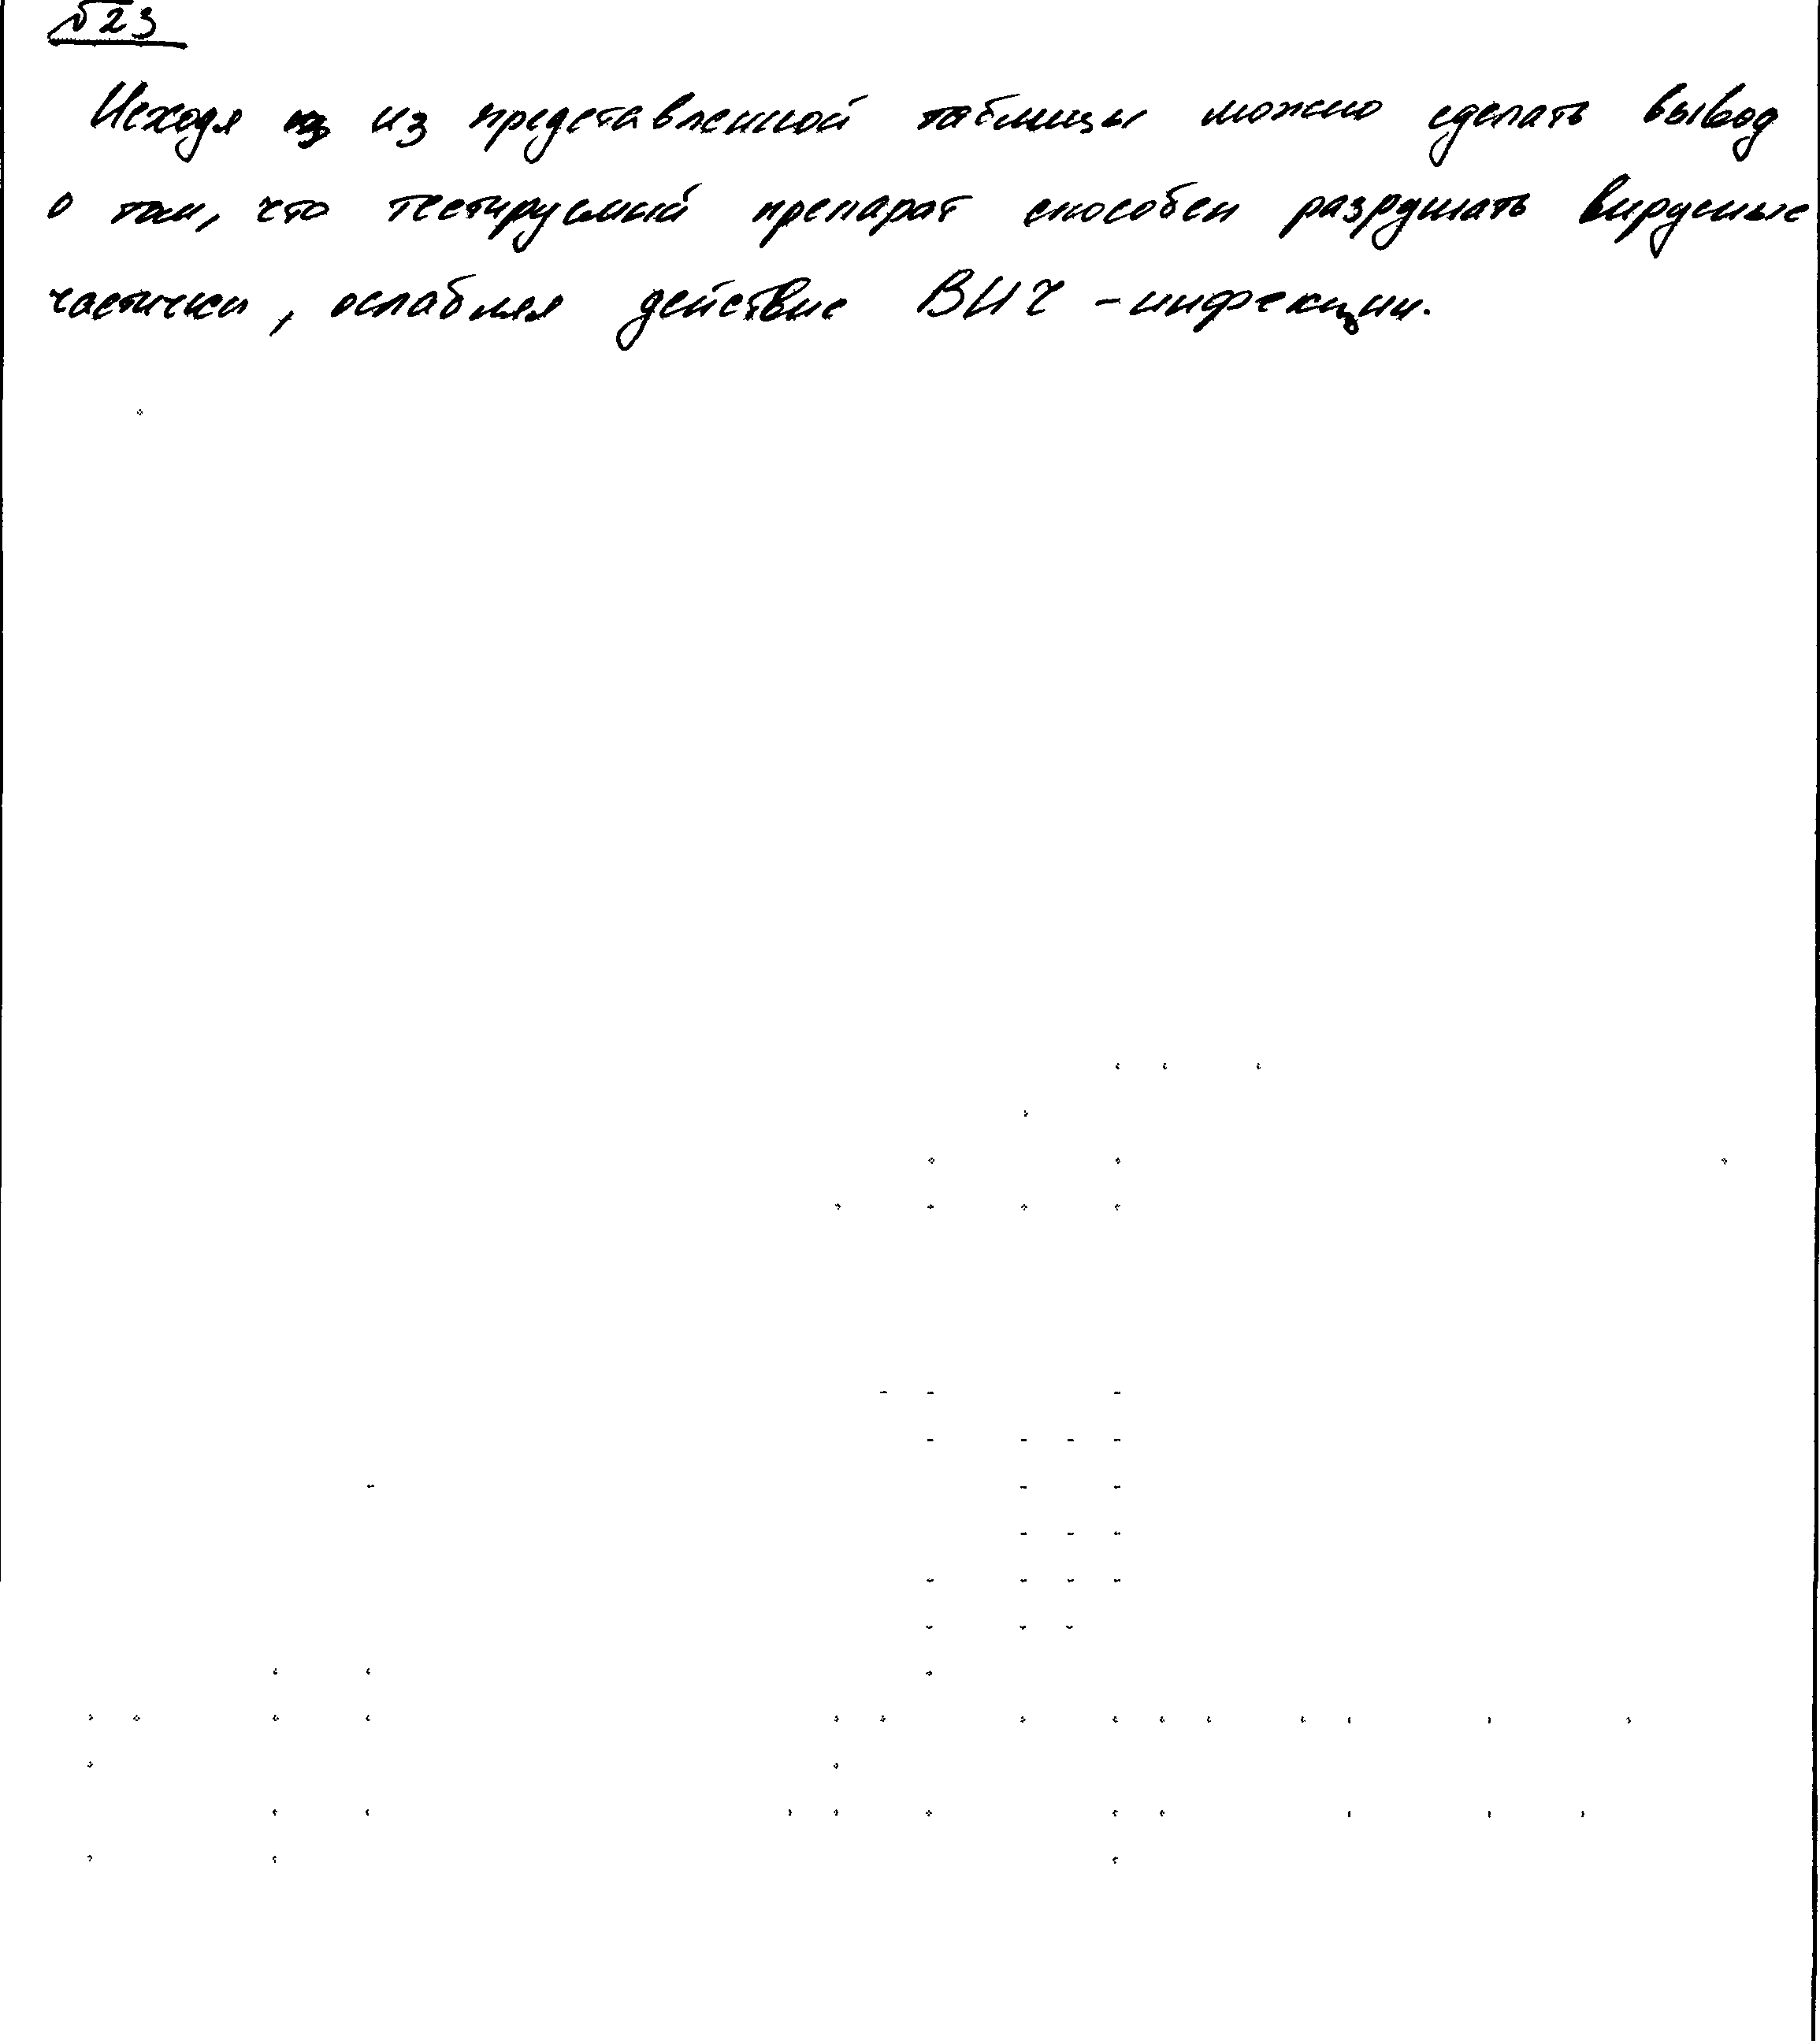 №23
Исходя из представленной таблицы можно сделать вывод
о том, что тестируемый препарат способен разрушать вирусные
частички, ослабляя действие ВИЧ-инфекции.